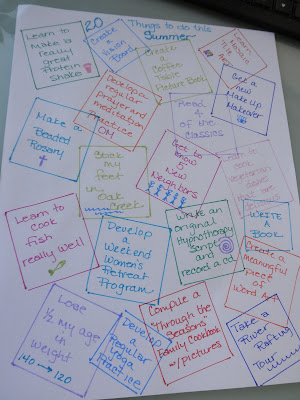 20 Things to do this
Summer
Learn to
Make a
really
great
Protein
Shake
Create
a Vision
Board
Create
a
Coffee
Table
Picture Book
Learn
Develop a
regular
Prayer and
meditation
Practice
OM
Get a
new
Make Up
Makeover
Read 4
of the
Classics
Make a
Beaded
Rosary
Soak my
feet
in
Oak
Creek
Get to
Know
my
New
Neighbors
Learn to
cook
vegetarian
Learn to
cook
fish
really well
Develop
a Weekend
Women's
Retreat
Program
Write an
original
Hypnotherapy
Script
and
record a cd
Write
A
Book
Create a
meaningful
piece of
Word Art
Lose
1/2 my age
in
weight
140 → 120
Develop
a
Regular
Yoga
Practice
Compile a
"through the
Seasons"
Family Cookbook
w/pictures
Take a
River
Rafting
Tour